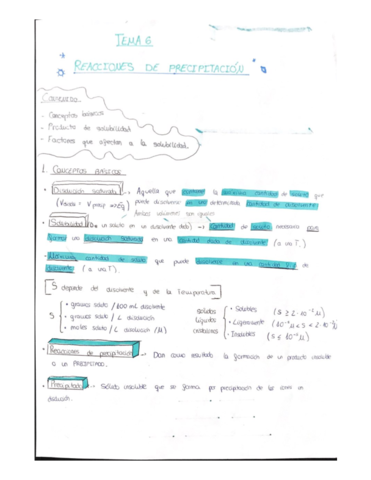 TEMA 6
REACCIONES DE PRECIPITACIÓN
CONTENIDO
- Conceptos básicos
- Producto de solubilidad
- Factores que afectan a la solubilidad.
1. CONCEPTOS BÁSICOS
• Disolución saturada -> Aquella que contiene la máxima cantidad de soluto que
puede disolverse en una determinada cantidad de disolvente
Ambas velocidades son iguales
• Solubilidad (de un soluto en un disolvente dado) -> Cantidad de soluto necesaria para
formar una disolución saturada en una cantidad dada de disolvente (a una T).
• Máxima cantidad de soluto que puede disolverse en una cantidad de
disolvente (a una T).
S depende del disolvente y de la Temperatura
S
• gramos soluto / 100 mL disolvente
• gramos soluto / L disolución
• moles soluto / L disolución (M)
sólidos
iónicos
cristalinos
• Solubles (S ≥ 2·10⁻² M)
• Ligeramente (10⁻⁵ M < S < 2·10⁻² M)
• Insolubles (S ≤ 10⁻⁵ M)
• Reacciones de precipitación -> Dan como resultado la formación de un producto insoluble
o un PRECIPITADO.
• Precipitado -> Sólido insoluble que se forma por precipitación de los iones en
disolución.